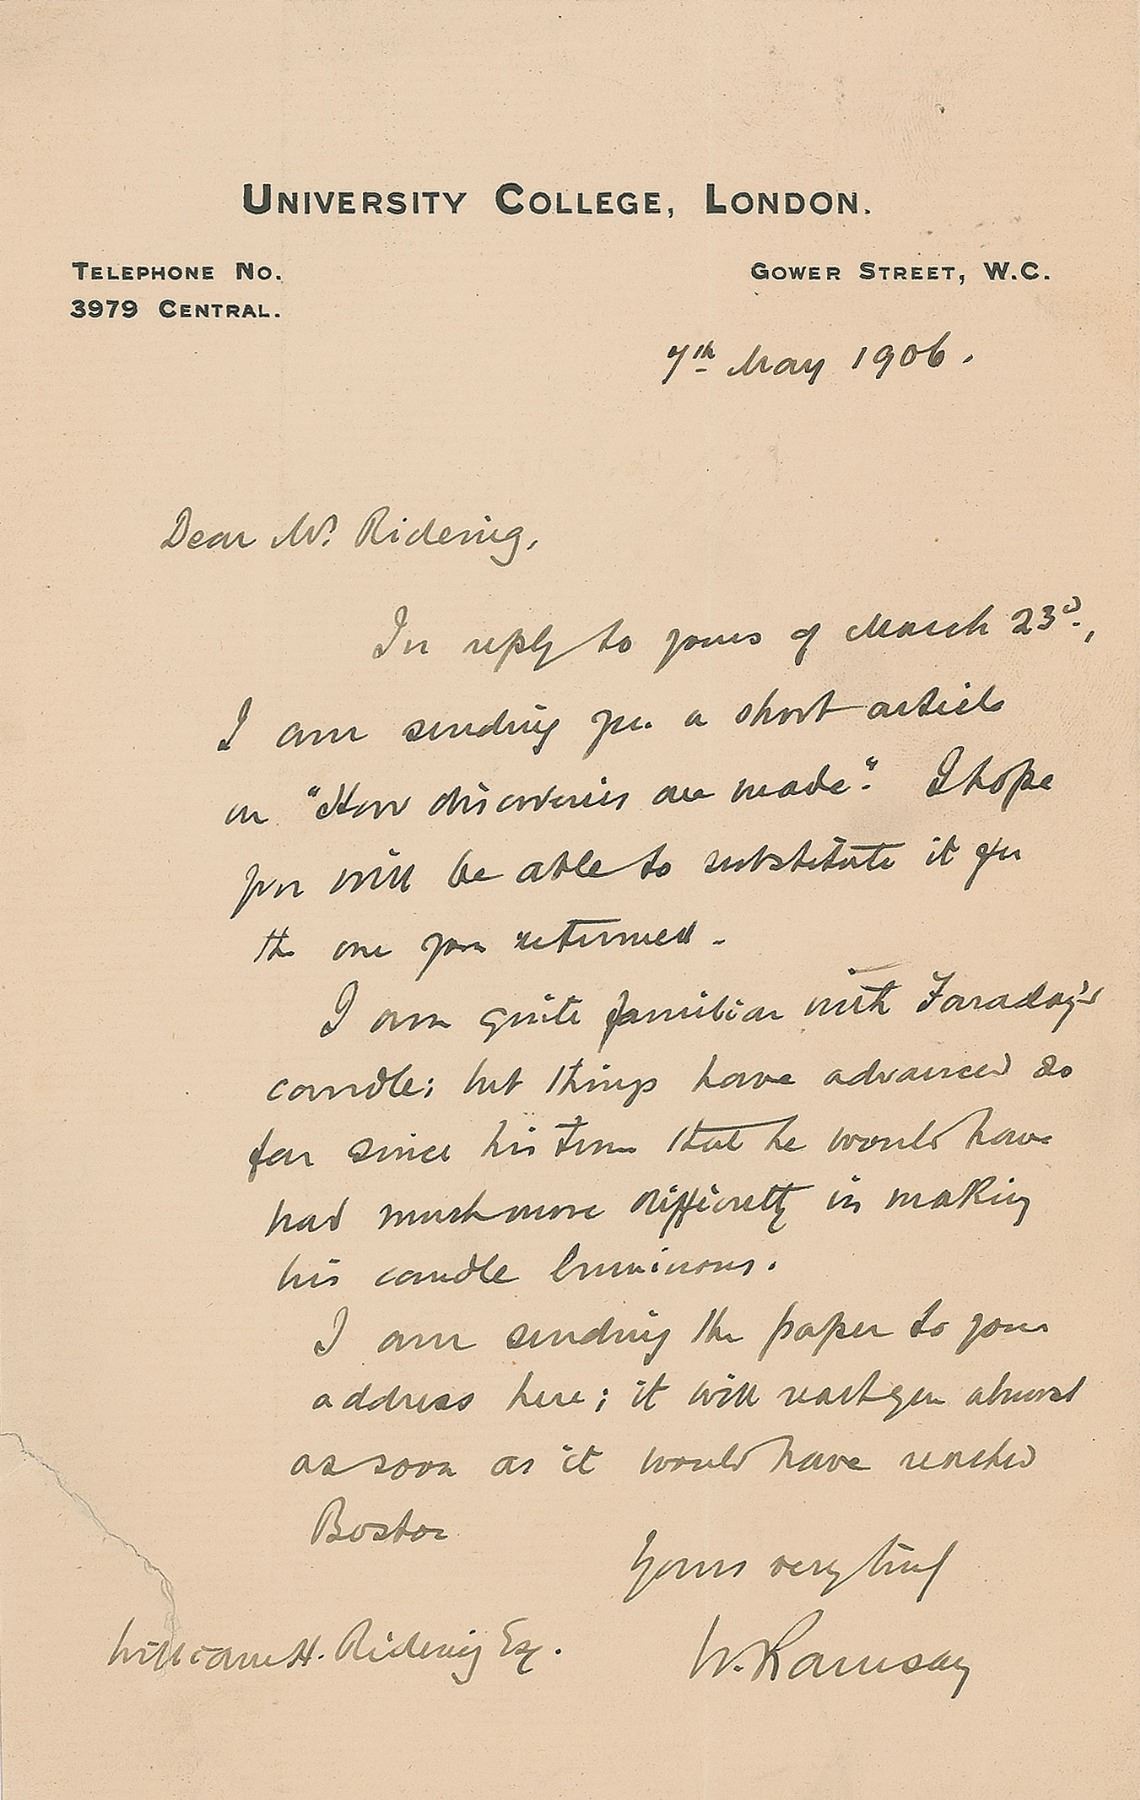 UNIVERSITY COLLEGE, LONDON.
TELEPHONE NO.
3979 CENTRAL.
GOWER STREET, W.C.
7th May 1906.
Dear Mr. Rideing,
In reply to yours of March 23d.,
I am sending you a short article
on "How discoveries are made". I hope
you will be able to substitute it for
the one you returned.
I am quite familiar with Faraday's
candle; but things have advanced so
far since his time that he would have
had much more difficulty in making
his candle luminous.
I am sending the paper to your
address here; it will reach you almost
as soon as it would have reached
Boston
Yours very truly
W. Ramsay
William H. Rideing Esq.